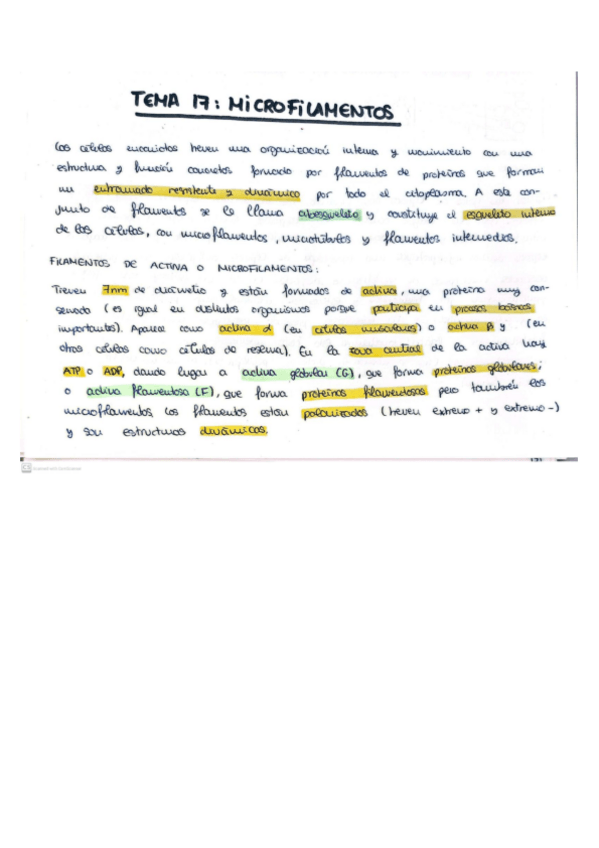 TEMA 17: MICROFILAMENTOS
Las células eucariotas tienen una organización interna y movimiento con una
estructura y función concretos formado por filamentos de proteínas que forman
un entramado resistente y dinámico por todo el citoplasma. A este con-
junto de filamentos se le llama citoesqueleto y constituye el esqueleto interno
de las células, con microfilamentos, microtúbulos y filamentos intermedios.
FILAMENTOS DE ACTINA O MICROFILAMENTOS:
Tienen 7nm de diámetro y están formados de actina, una proteína muy con-
servada (es igual en distintos organismos porque participa en procesos básicos
importantes). Aparece como actina α (en células musculares) o actina β y (en
otras células como células de reserva). En la zona central de la actina hay
ATP o ADP, dando lugar a actina globular (G), que forma proteínas globulares;
o actina filamentosa (F), que forma proteínas filamentosas pero también los
microfilamentos. Los filamentos están polarizados (tienen extremo + y extremo -)
y son estructuras dinámicas.